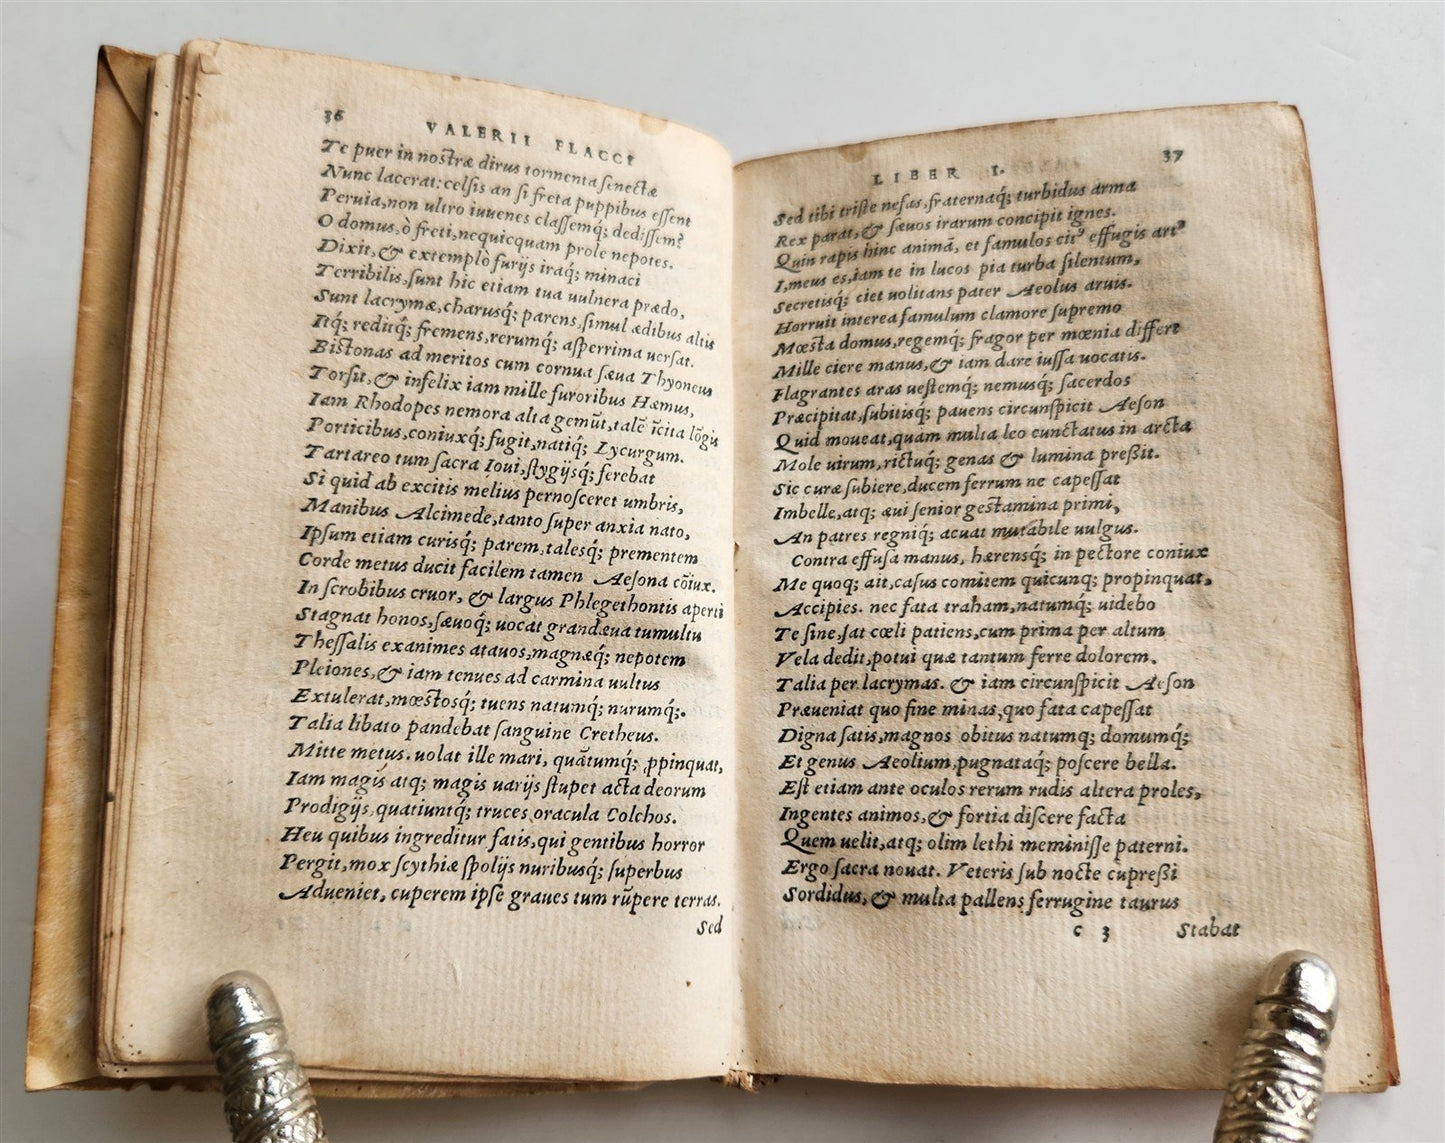 36 VALERII FLACCI
Te puer in nostræ dirus tormenta senectæ
Nunc lacerat: celsis an si freta puppibus essent
Peruia, non ultro iuuenes classemq́; dedissem?
O domus, ò freti, nequicquam prole nepotes.
Dixit, & extemplò furijs iraq́; minaci
Terribilis, sunt hic etiam tua uulnera prædo,
Sunt lacrymæ, charusq́; parens, simul ædibus altis
Itq́; reditq́; fremens, rerumq́; asperrima uersat.
Bistonas ad meritos cum cornua sæua Thyoneus
Torsit, & infelix iam mille furoribus Hæmus,
Iam Rhodopes nemora alta gemūt, talē īcita lōgis
Porticibus, coniuxq́; fugit, natiq́; Lycurgum.
Tartareo tum sacra Ioui, stygijsq́; ferebat
Si quid ab excitis melius pernosceret umbris,
Manibus Alcimede, tanto super anxia nato,
Ipsum etiam curisq́; parem, talesq́; prementem
Corde metus ducit facilem tamen Aesona cōiux.
In scrobibus cruor, & largus Phlegethontis aperti
Stagnat honos, sæuoq́; uocat grandæua tumultu
Thessalis exanimes atauos, magnæq́; nepotem
Pleiones, & iam tenues ad carmina uultus
Extulerat, mœstosq́; tuens natumq́; nurumq́;.
Talia libato pandebat sanguine Cretheus.
Mitte metus. uolat ille mari, quātumq́; ꝓpinquat,
Iam magis atq; magis uarijs stupet acta deorum
Prodigijs, quatiuntq́; truces oracula Colchos.
Heu quibus ingreditur fatis, qui gentibus horror
Pergit, mox scythiæ spolijs nuribusq́; superbus
Adueniet, cuperem ipse graues tum rūpere terras.
Sed
LIBER I. 37
Sed tibi triste nefas, fraternaq́; turbidus arma
Rex parat, & sæuos irarum concipit ignes.
Quin rapis hinc animā, et famulos citꝰ effugis artꝰ
I, meus es, iam te in lucos pia turba silentum,
Secretisq́; ciet uolitans pater Aeolus aruis.
Horruit interea famulum clamore supremo
Mœsta domus, regemq́; fragor per mœnia differt
Mille ciere manus, & iam dare iussa uocatis.
Flagrantes aras uestemq́; nemusq́; sacerdos
Præcipitat, subitisq́; pauens circunspicit Aeson
Quid moueat, quam multa leo cunctatus in arcta
Mole uirum, rictuq́; genas & lumina preßit.
Sic curæ subiere, ducem ferrum ne capessat
Imbelle, atq; æui senior gestamina primi,
An patres regniq́; acuat mutabile uulgus.
Contra effusa manus, hærensq́; in pectore coniux
Me quoq; ait, casus comitem quicunq; propinquat,
Accipies. nec fata traham, natumq́; uidebo
Te sine, sat cœli patiens, cum prima per altum
Vela dedit, potui quæ tantum ferre dolorem.
Talia per lacrymas. & iam circunspicit Aeson
Præueniat quo fine minas, quo fata capessat
Digna satis, magnos obitus natumq́; domumq́;
Et genus Aeolium, pugnataq́; poscere bella.
Est etiam ante oculos rerum rudis altera proles,
Ingentes animos, & fortia discere facta
Quem uelit, atq; olim lethi meminisse paterni.
Ergo sacra nouat. Veteris sub nocte cupreßi
Sordidus, & multa pallens ferrugine taurus
c 3 Stabat